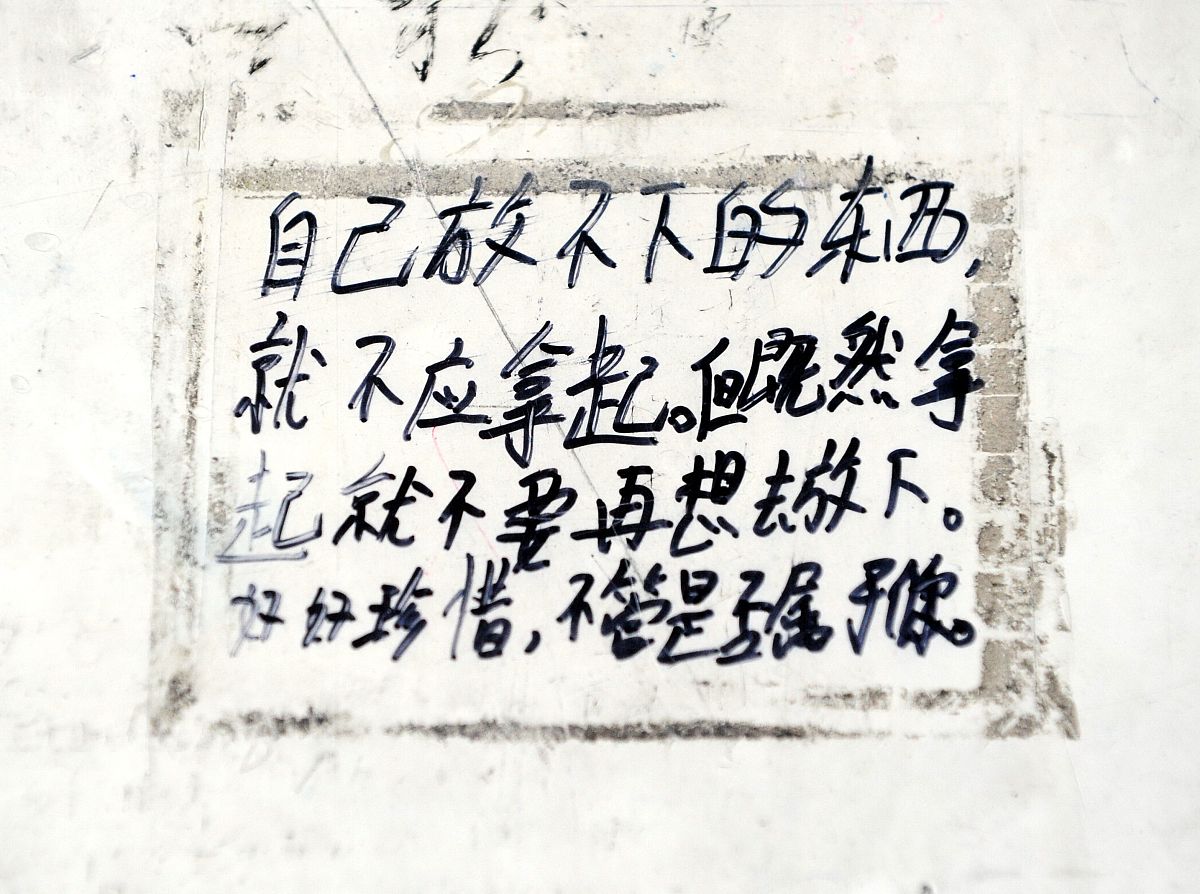 自己放不下的东西,
就不应拿起。但既然拿
起就不要再想去放下。
好好珍惜,不管是否属于你。